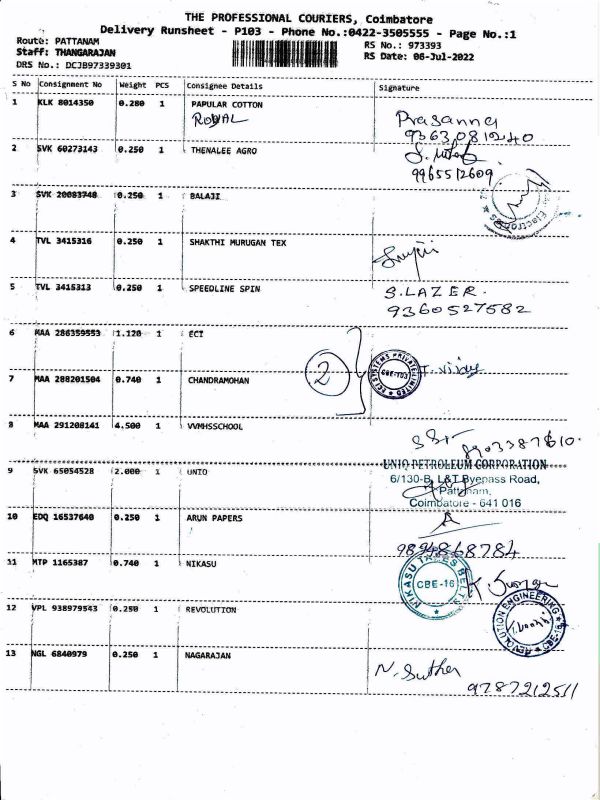 THE PROFESSIONAL COURIERS, Coimbatore
Delivery Runsheet - P103 - Phone No.:0422-3505555 - Page No.:1
Route: PATTANAM
Staff: THANGARAJAN
DRS No.: DCJB97339301
RS No.: 973393
RS Date: 06-Jul-2022
S No Consignment No Weight PCS Consignee Details Signature
1 KLK 8014350 0.280 1 PAPULAR COTTON
ROYAL
Prasanna
9363081240
2 SVK 60273143 0.250 1 THENALEE AGRO
9965512609
3 SVK 20083748 0.250 1 BALAJI
Electronics
4 TVL 3415316 0.250 1 SHAKTHI MURUGAN TEX
5 TVL 3415313 0.250 1 SPEEDLINE SPIN
S.LAZER.
9360527582
6 MAA 286359553 1.120 1 ECI
2
ECI SYSTEMS PRIVATE LIMITED
CBE-103
Vijay
7 MAA 288201504 0.740 1 CHANDRAMOHAN
8 MAA 291208141 4.500 1 VVMHSSCHOOL
8903387610.
9 SVK 65054528 2.000 1 UNIO
UNIQ PETROLEUM CORPORATION
6/130-B, L&T Byepass Road,
Pattanam,
Coimbatore - 641 016
10 EDQ 16537640 0.250 1 ARUN PAPERS
9894868784
11 MTP 1165387 0.740 1 NIKASU
NIKASU TAPES BELTS
CBE-16
12 VPL 938979543 0.250 1 REVOLUTION
REVOLUTION ENGINEERING
13 NGL 6840979 0.250 1 NAGARAJAN
N. Suther
9787212511